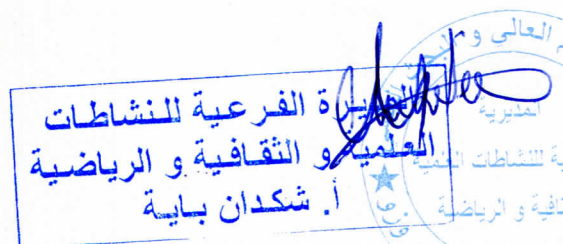 المديرة الفرعية للنشاطات
العلمية و الثقافية و الرياضية
أ. شكدان باية
م العالي و
المديرية
ية للنشاطات العلمية
ثقافية و الرياضية